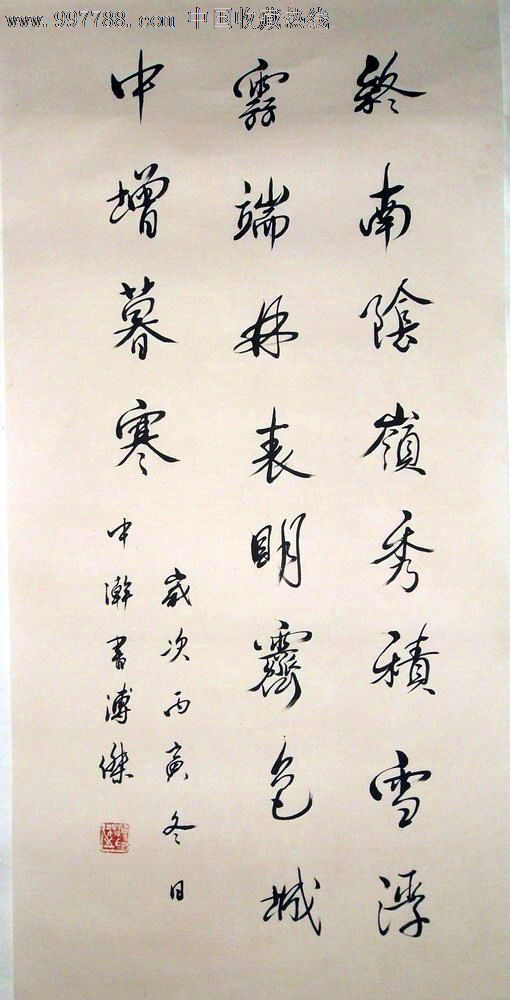 www.997788.com 中国收藏热线
終南陰嶺秀積雪浮
雲端林表明霽色城
中增暮寒
歲次丙寅冬日
中瀚書溥傑